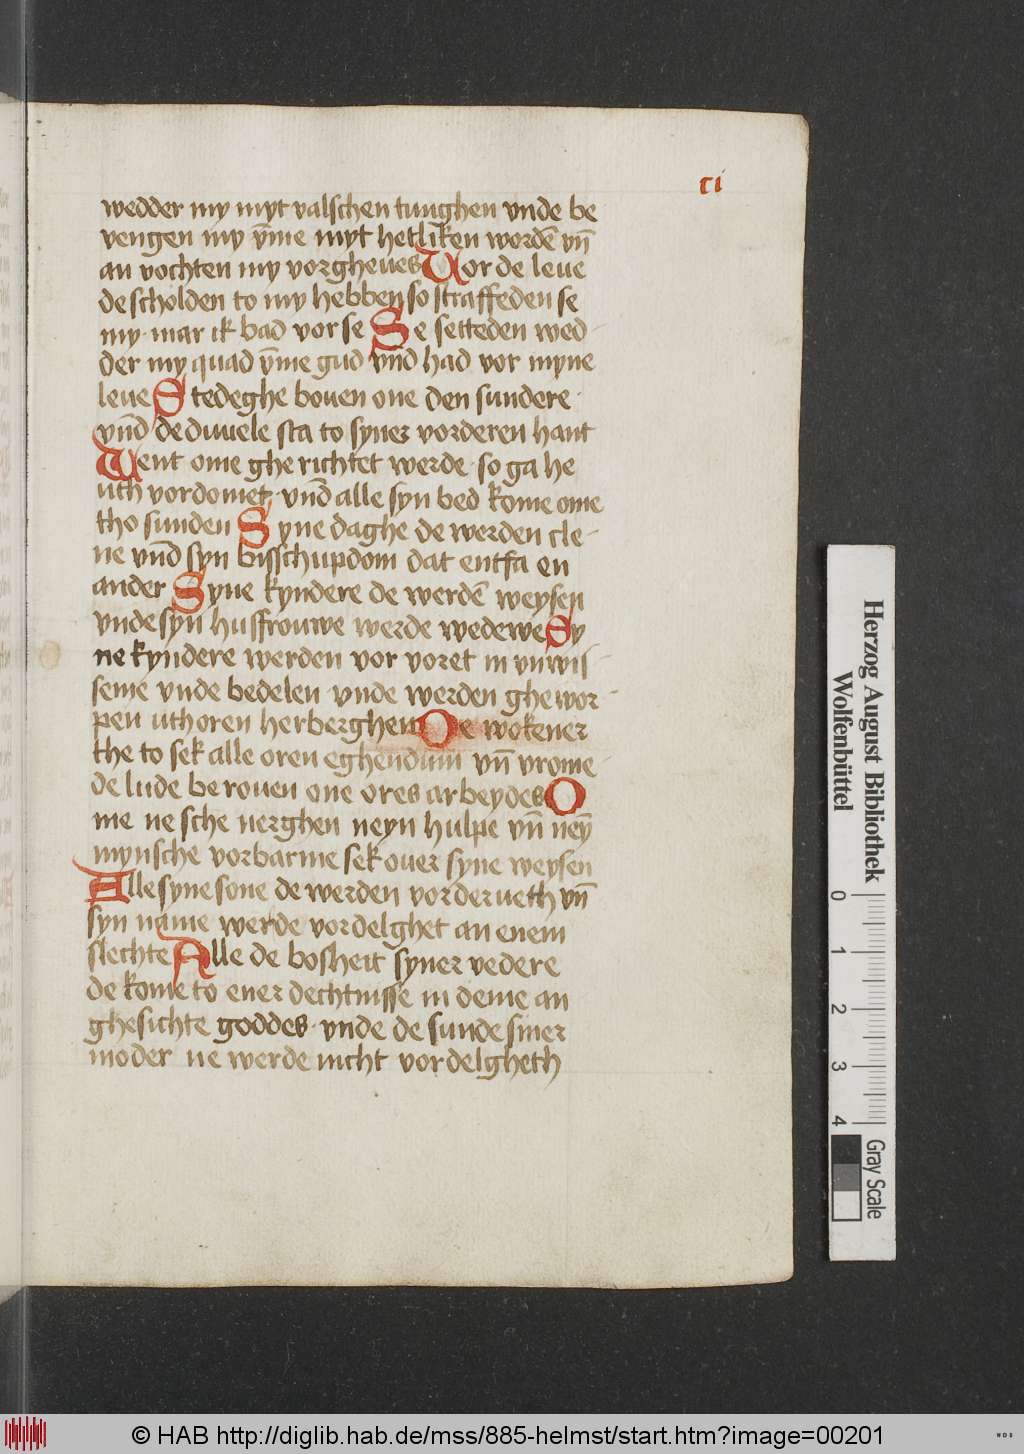 ci
wedder my myt valschen tunghen vnde be
vengen my v̄me myt hetliken wordē vn̄
an vochten my vorgheues Vor de leue
de scholden to my hebben so straffeden se
my · mar ik bad vor se Se setteden wed-
der my quad v̄me gud vn̄d had vor myne
leue Stedeghe bouen one den sundere
vn̄d de duuele sta to syner vorderen hant
Went ome ghe richtet werde · so ga he
uth vordomet · vn̄d alle syn bed kome ome
tho sunden Syne daghe de werden cle-
ne vn̄d syn bisschupdom dat entfa en
ander Syne kyndere de werdē weysen
vnde syn husfrouwe werde wedewe Sy
ne kyndere werden vor voret in vnwis-
seme vnde bedelen vnde werden ghewor-
pen uth oren herberghen De wokener
the to sek alle oren eghendum vn̄ vrome-
de lude berouen one ores arbeydes O
me ne sche nerghen neyn hulpe vn̄ neȳ
mynsche vorbarme sek ouer syne weysen
Alle syne sone de werden vorderueth vn̄
syn name werde vordelghet an enem
slechte Alle de bosheit syner vedere
de kome to ener dechtnisse in deme an
ghesichte goddes · vnde de sunde siner
moder ne werde nicht vordelgheth
Herzog August Bibliothek
Wolfenbüttel
0 1 2 3 4
Gray Scale
© HAB http://diglib.hab.de/mss/885-helmst/start.htm?image=00201